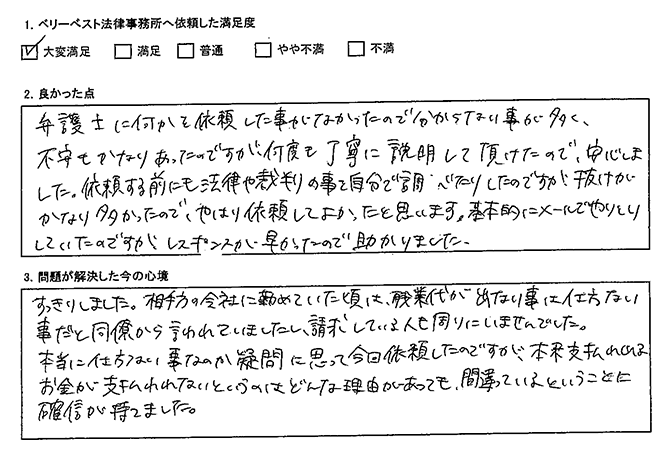 1. ベリーベスト法律事務所へ依頼した満足度
☑ 大変満足 □ 満足 □ 普通 □ やや不満 □ 不満
2. 良かった点
弁護士に何かを依頼した事がなかったので分からない事が多く、
不安もかなりあったのですが、何度も丁寧に説明して頂けたので、安心しま
した。依頼する前にも法律や裁判の事を自分で調べたりしたのですが、抜けが
かなり多かったので、やはり依頼してよかったと思います。基本的にメールでやりとり
していたのですが、レスポンスが早かったので助かりました。
3. 問題が解決した今の心境
すっきりしました。相手方の会社に勤めていた頃は、残業代が出ない事は仕方ない
事だと同僚から言われていましたし、請求している人も周りにいませんでした。
本当に仕方ない事なのか疑問に思って今回依頼したのですが、本来支払われる
お金が支払われないというのはどんな理由があっても、間違っているということに
確信が持てました。